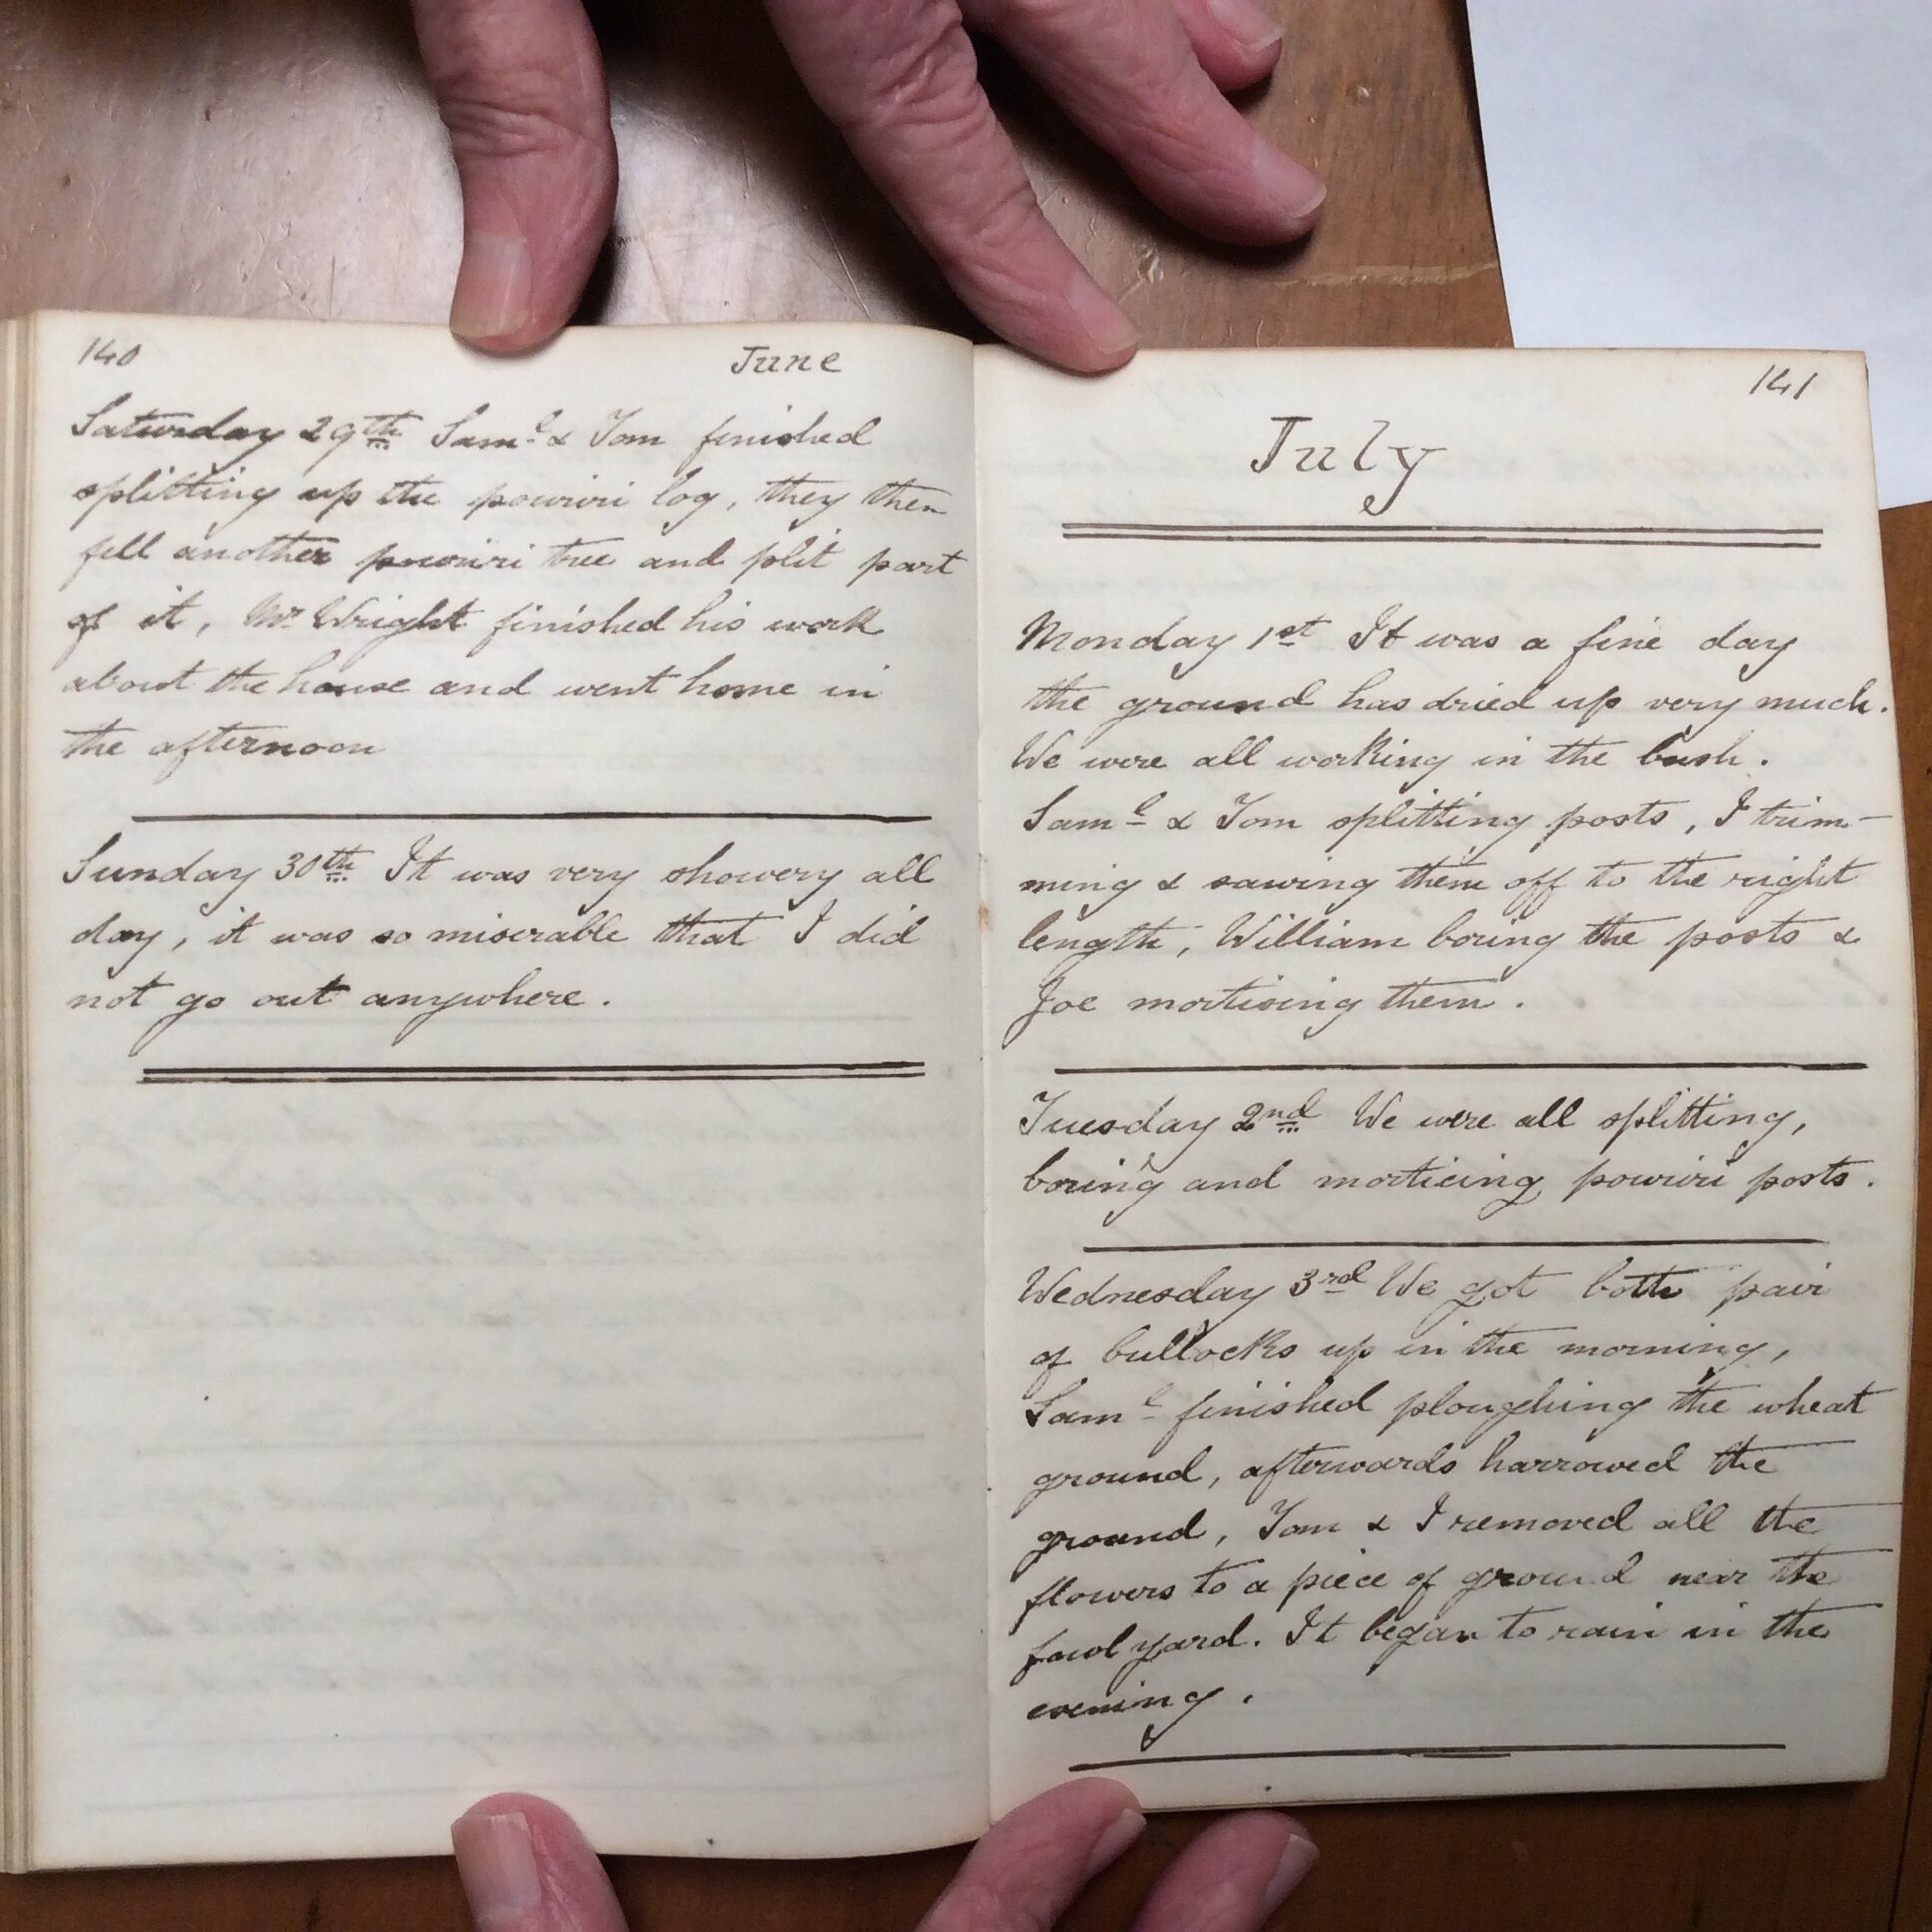 140 June
Saturday 29th Saml & Tom finished
splitting up the powiri log, they then
fell another powiri tree and plit part
of it, Mr Wright finished his work
about the house and went home in
the afternoon
Sunday 30th It was very showery all
day, it was so miserable that I did
not go out anywhere.
141
July
Monday 1st It was a fine day
the ground has dried up very much.
We were all working in the bush.
Saml & Tom splitting posts, I trim-
ming & sawing them off to the right
length, William boring the posts &
Joe mortising them.
Tuesday 2nd We were all splitting,
boring and morticing powiri posts.
Wednesday 3rd We got both pair
of bullocks up in the morning,
Saml finished ploughing the wheat
ground, afterwards harrowed the
ground, Tom & I removed all the
flowers to a piece of ground near the
fowl yard. It began to rain in the
evening.